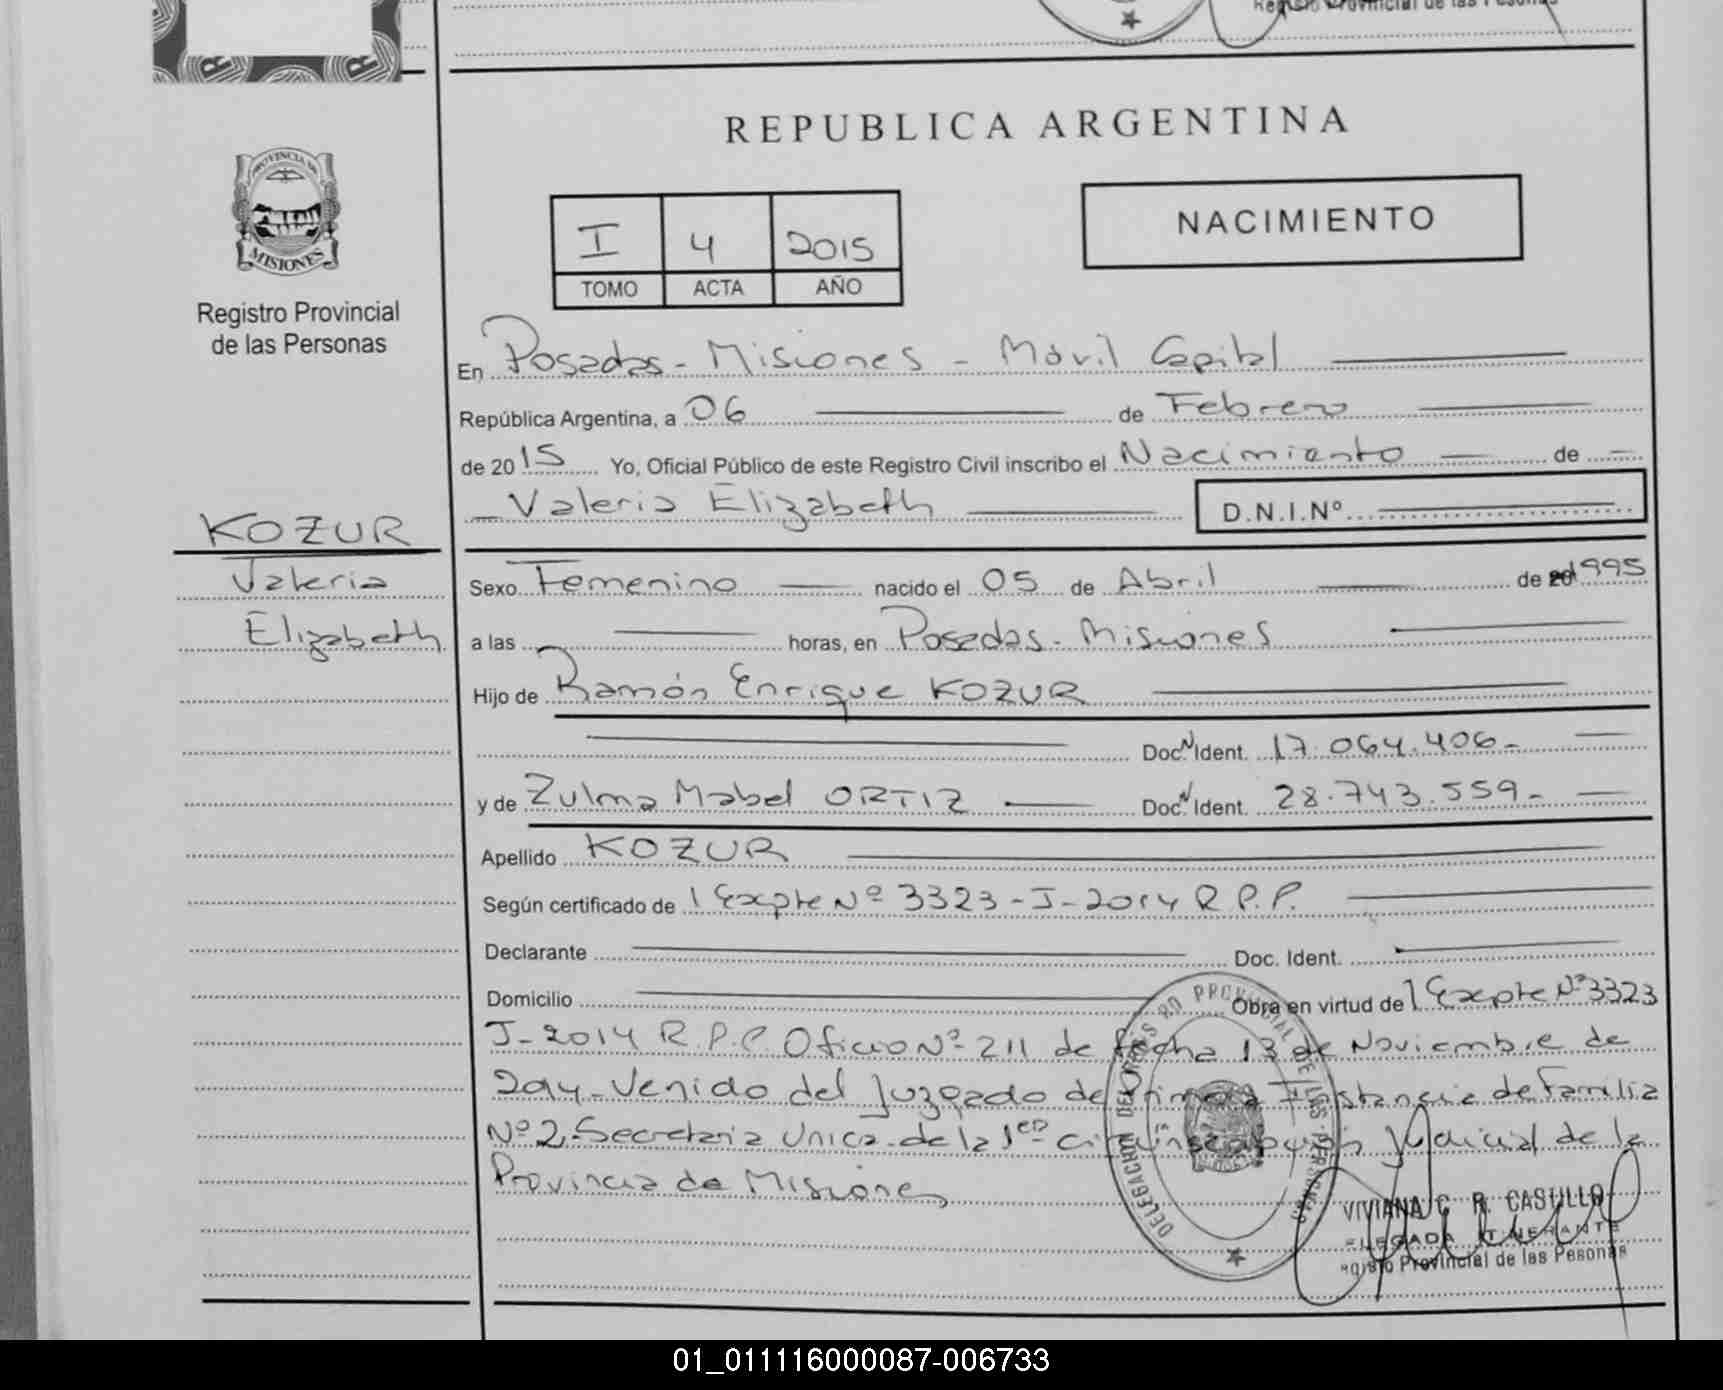 Registro Provincial de las Personas
REPUBLICA ARGENTINA
PROVINCIA DE
MISIONES
Registro Provincial
de las Personas
I 4 2015
TOMO ACTA AÑO
NACIMIENTO
En Posadas - Misiones - Móvil Capital
República Argentina, a 06 de Febrero
de 2015 Yo, Oficial Público de este Registro Civil inscribo el Nacimiento de
Valeria Elizabeth D.N.I.Nº
KOZUR
Valeria
Elizabeth
Sexo Femenino nacido el 05 de Abril de 1995
a las horas, en Posadas - Misiones
Hijo de Ramón Enrique KOZUR
Doc. N Ident. 17.064.406.-
y de Zulma Mabel ORTIZ Doc. N Ident. 28.743.559.-
Apellido KOZUR
Según certificado de 1 Expte Nº 3323-J-2014 R.P.P.
Declarante Doc. Ident.
Domicilio Obra en virtud de 1 Expte Nº 3323
J-2014 R.P.P. Oficio Nº 211 de fecha 13 de Noviembre de
2014. Venido del Juzgado de Primera Instancia de Familia
Nº 2. Secretaria Unica de la 1era circunscripción Judicial de la
Provincia de Misiones
VIVIANA C. R. CASTILLO
DELEGADA ITINERANTE
Registro Provincial de las Pesonas
01_011116000087-006733